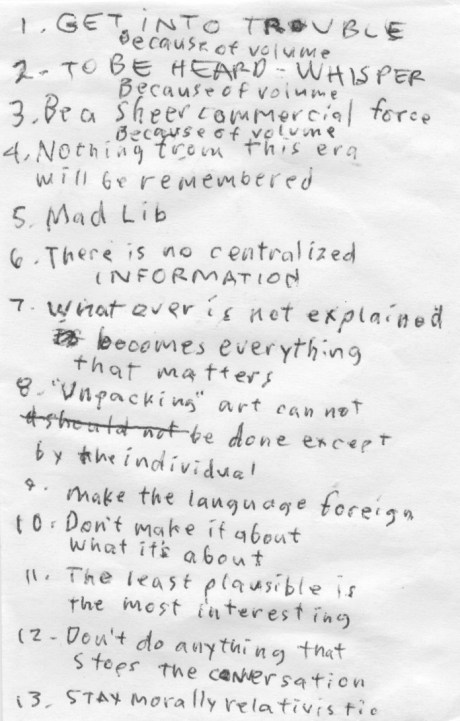 1. GET INTO TROUBLE
Because of volume
2 - TO BE HEARD - WHISPER
Because of volume
3. Be a sheer commercial force
Because of volume
4. Nothing from this era
will be remembered
5. Mad Lib
6. There is no centralized
INFORMATION
7. whatever is not explained
becomes everything
that matters
8. "Unpacking" art can not
should not be done except
by the individual
9. make the language foreign
10. Don't make it about
what it's about
11. The least plausible is
the most interesting
12 - Don't do anything that
stops the conversation
13. STAY morally relativistic